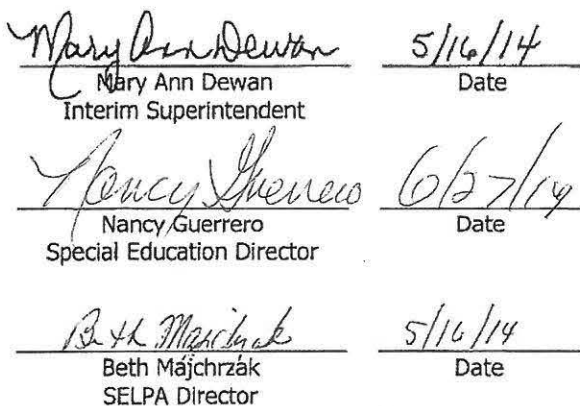 Mary Ann Dewan 5/16/14
Mary Ann Dewan Date
Interim Superintendent
Nancy Guerrero 6/27/14
Nancy Guerrero Date
Special Education Director
Beth Majchrzak 5/16/14
Beth Májchrzák Date
SELPA Director